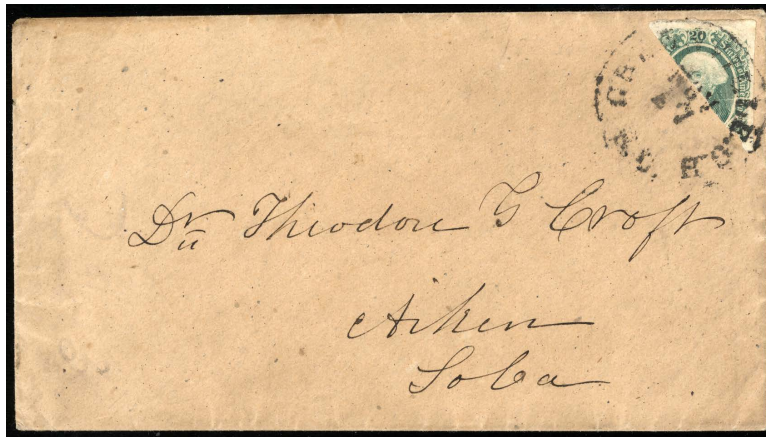 20
Dr Theodore G Croft
Aiken
So Ca